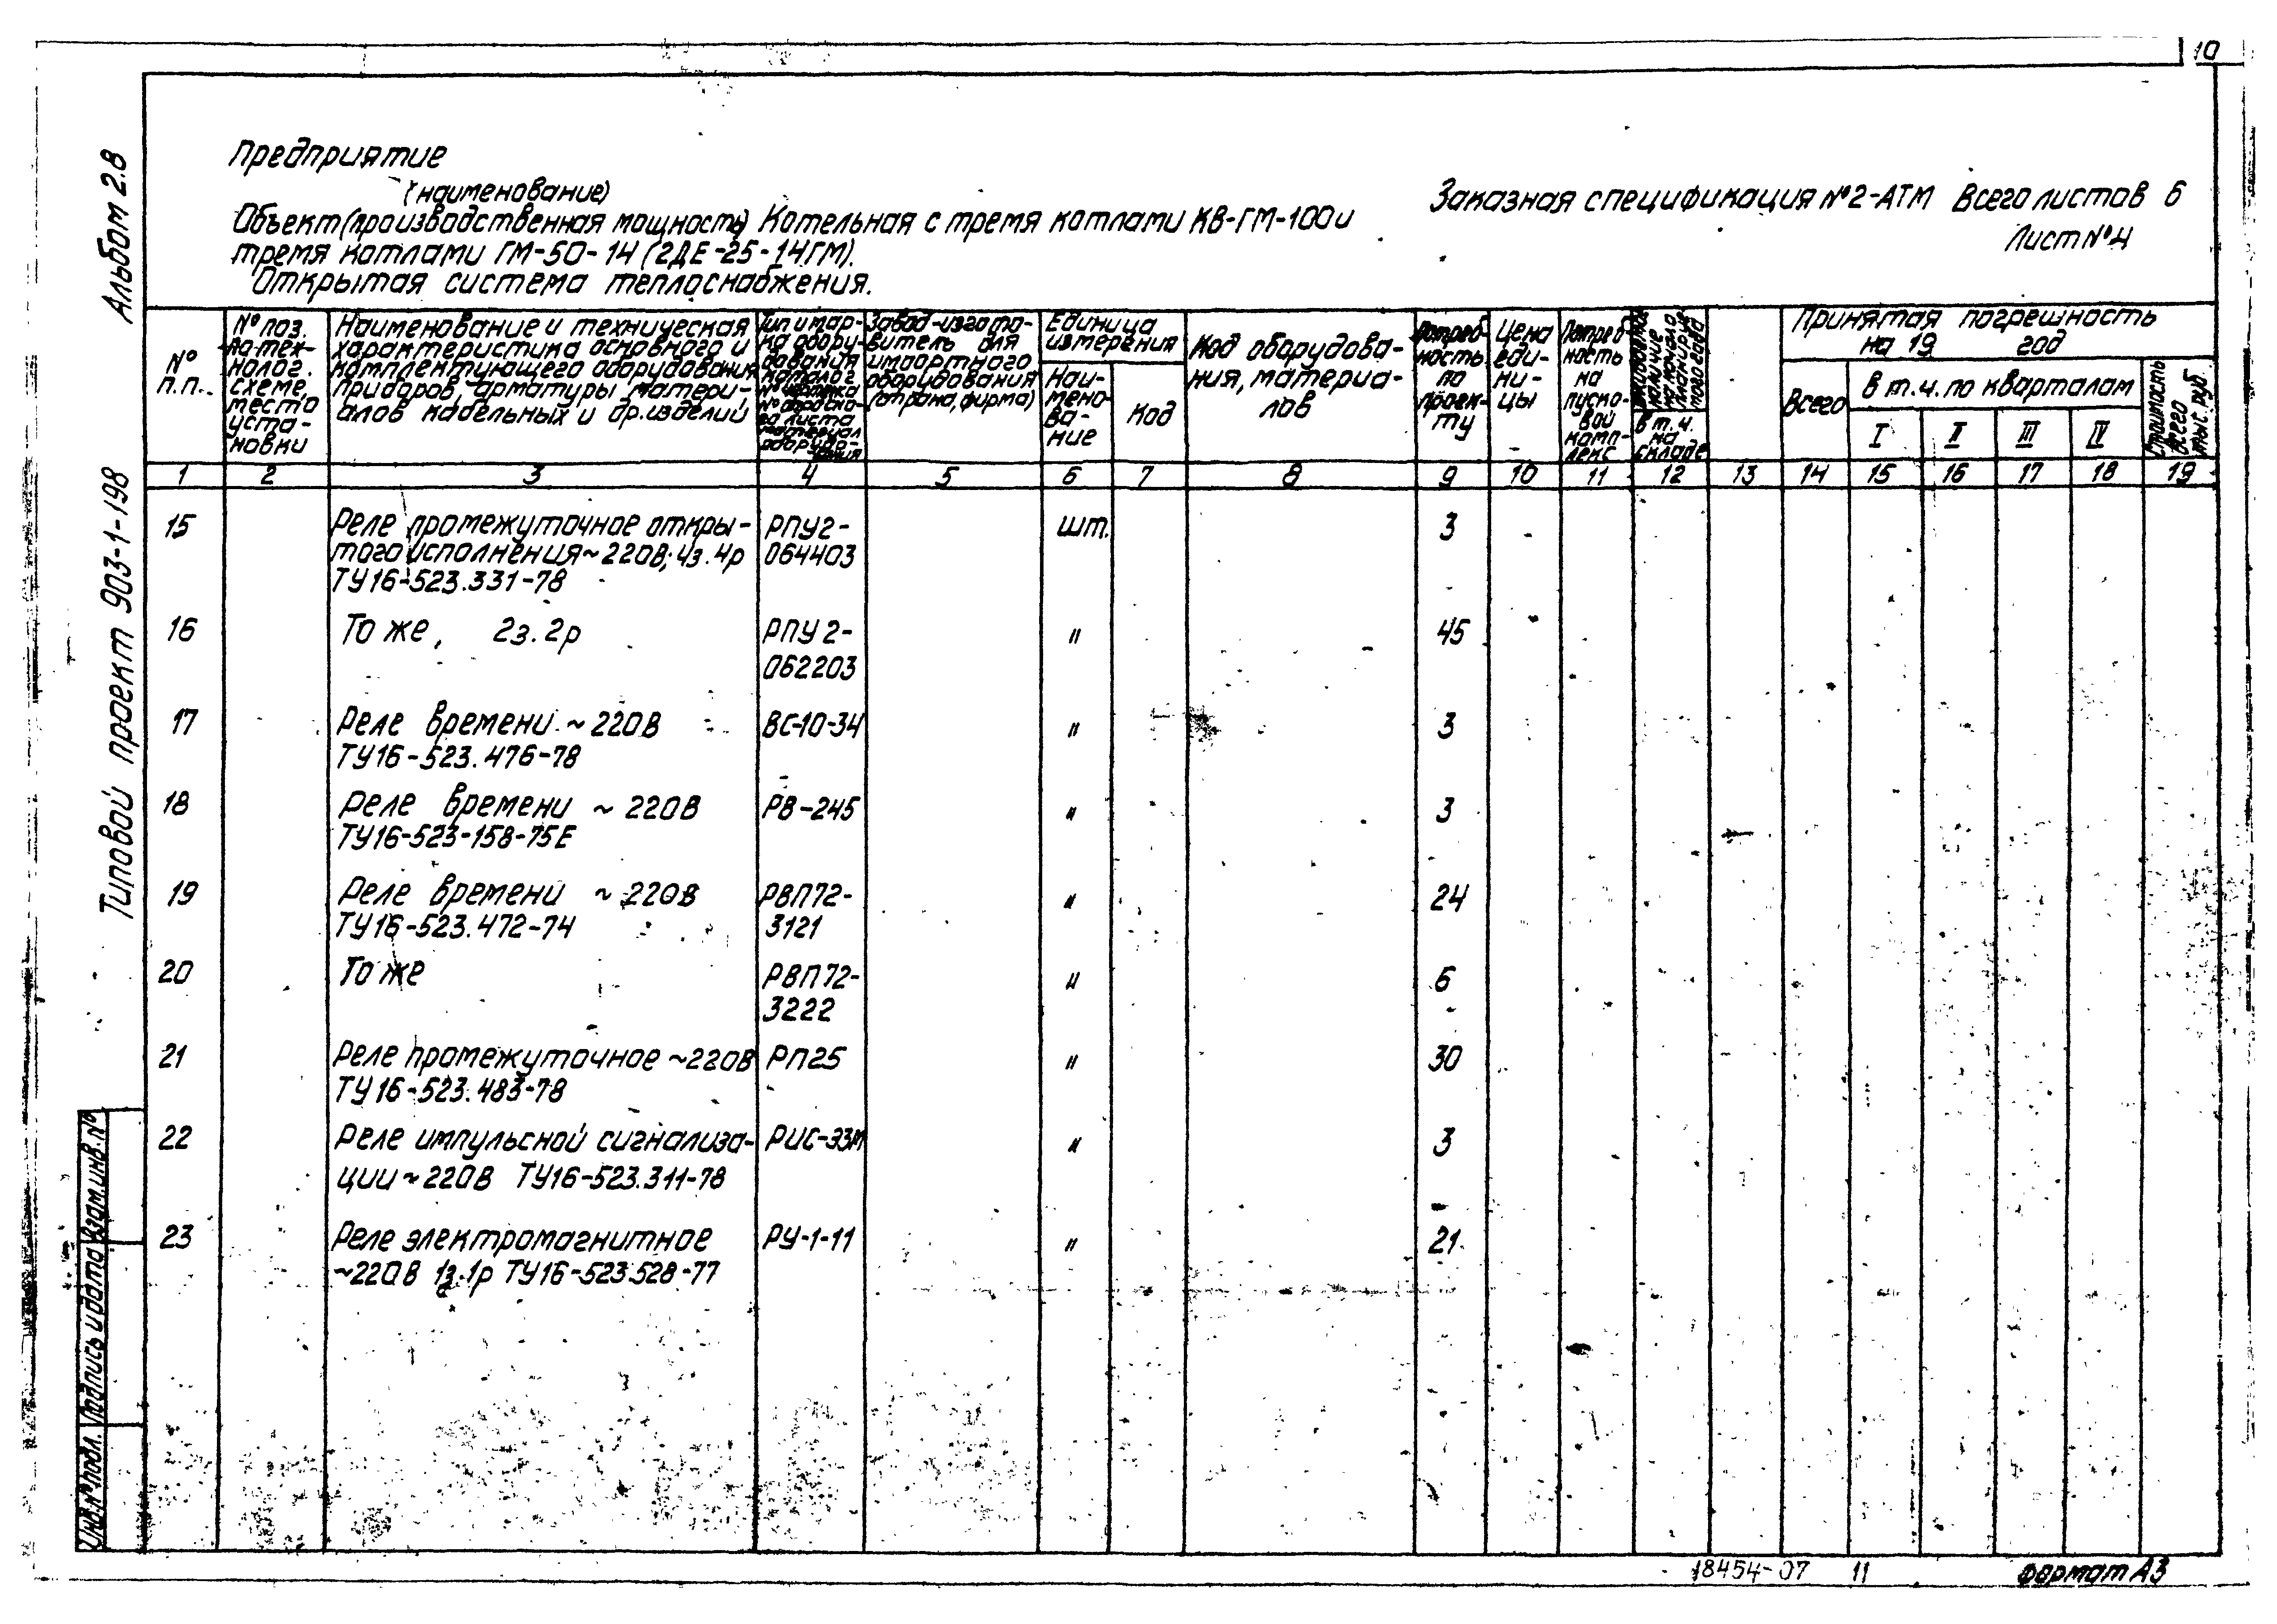 10
Альбом 2.8
Типовой проект 903-1-198
Предприятие
(наименование)
Объект (производственная мощность) Котельная с тремя котлами КВ-ГМ-100 и
тремя котлами ГМ-50-14 (2ДЕ-25-14ГМ).
Открытая система теплоснабжения.
Заказная спецификация №2-АТМ Всего листов 6
Лист №4
№ п.п.
№ поз. по технолог. схеме, место установки
Наименование и техническая характеристика основного и комплектующего оборудования, приборов, арматуры, материалов кабельных и др. изделий
Тип и марка оборудования
Завод-изготовитель для импортного оборудования (страна, фирма)
Единица измерения
Наименование
Код
Код оборудования, материалов
Потребность по проекту
Цена единицы
Потребность на пусковой комплекс
в т.ч. на складе
Принятая погрешность на 19 год
Всего
в т.ч. по кварталам
I II III IV
Стоимость всего тыс. руб.
1 2 3 4 5 6 7 8 9 10 11 12 13 14 15 16 17 18 19
15 Реле промежуточное откры- РПУ2- шт. 3
того исполнения ~220В; 4з. 4р 064403
ТУ16-523.331-78
16 То же, 2з. 2р РПУ2- " 45
062203
17 Реле времени ~220В ВС-10-34 " 3
ТУ16-523.476-78
18 Реле времени ~220В РВ-245 " 3
ТУ16-523-158-75Е
19 Реле времени ~220В РВП72- " 24
ТУ16-523.472-74 3121
20 То же РВП72- " 6
3222
21 Реле промежуточное ~220В РП25 " 30
ТУ16-523.483-78
22 Реле импульсной сигнализа- РИС-Э3М " 3
ции ~220В ТУ16-523.311-78
23 Реле электромагнитное РУ-1-11 " 21
~220В 1з.1р ТУ16-523.528-77
Инв.№ подл. Подпись и дата Взам.инв.№
18454-07 11 Формат А3